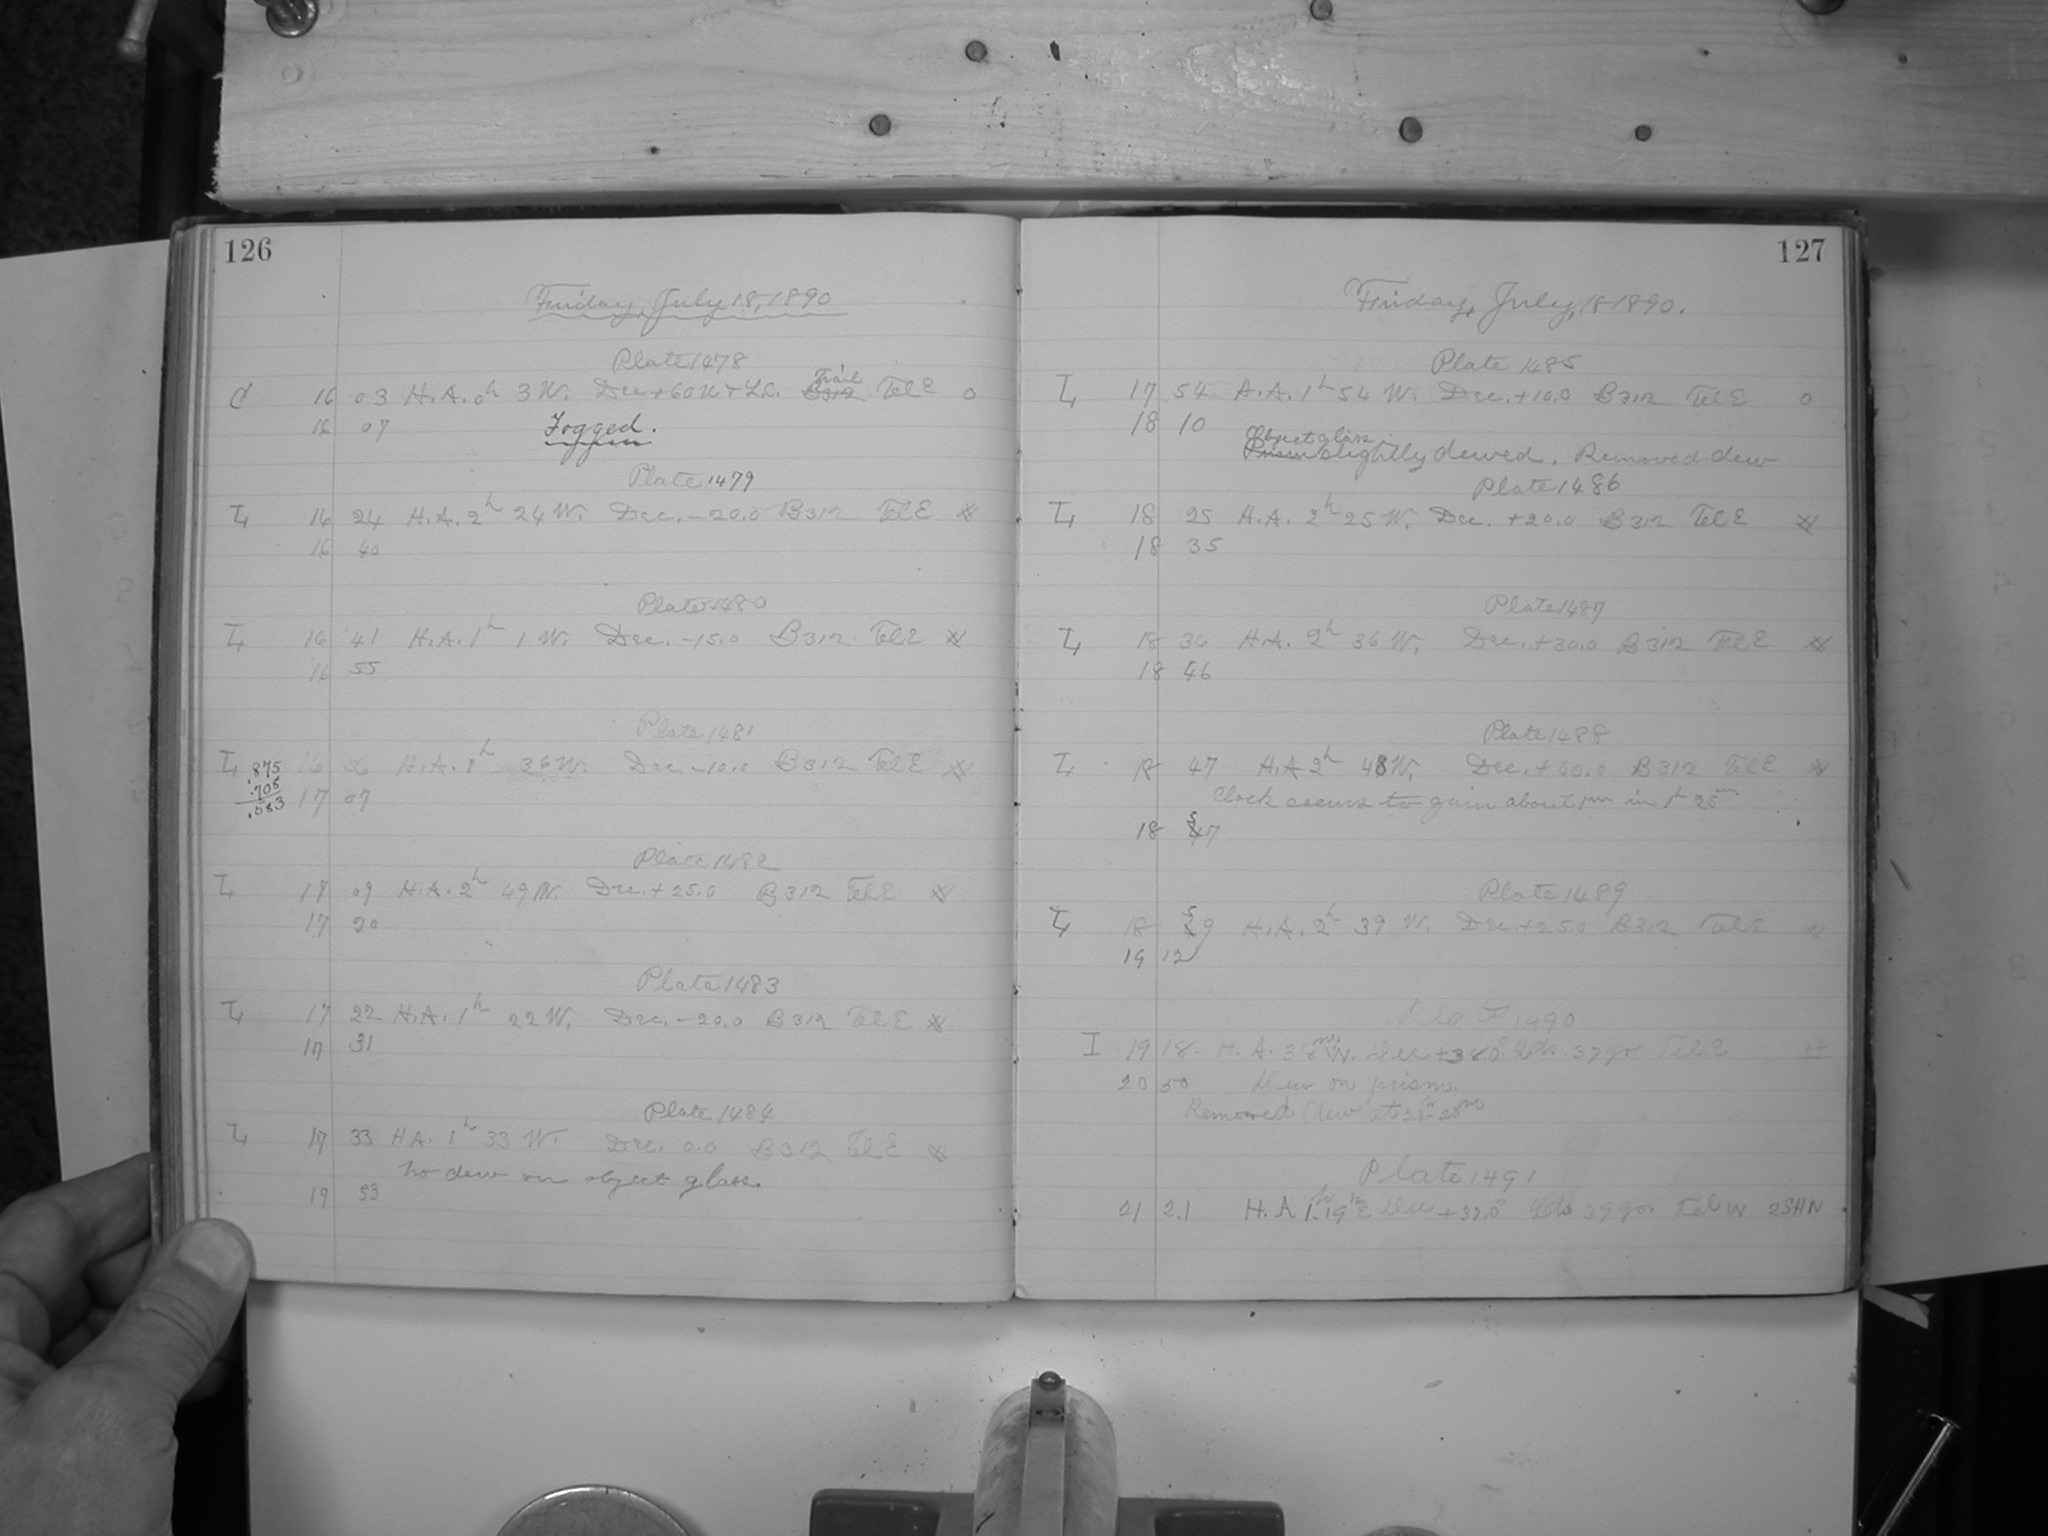 126
Friday, July 18, 1890
Plate 1478
16 03 H.A. 0h 3 W. Dec +60 Trail B312 Tel E o
16 07 Fogged.
Plate 1479
I4 16 24 H.A. 2h 24 W. Dec. -20.0 B312 Tel E
16 40
Plate 1480
I4 16 41 H.A. 1h 1 W. Dec. -15.0 B312 Tel E
16 55
Plate 1481
I4 .875 16 56 H.A. 36 W. Dec. -10.0 B312 Tel E
.708
.583 17 07
Plate 1482
I4 17 09 H.A. 2h 49 W. Dec. +25.0 B312 Tel E
17 20
Plate 1483
I4 17 22 H.A. 1h 22 W. Dec. -20.0 B312 Tel E
17 31
Plate 1484
I4 17 33 HA. 1h 33 W. Dec. 0.0 B312 Tel E
No dew on object glass.
53
127
Friday, July, 18 1890.
Plate 1485
I4 17 54 H.A. 1h 54 W. Dec. +10.0 B312 Tel E o
18 10
Object glass
Prism slightly dewed. Removed dew
Plate 1486
I4 18 25 H.A. 2h 25 W. Dec. +20.0 B312 Tel E
18 35
Plate 1487
I4 18 36 H.A. 2h 36 W. Dec. +30.0 B312 Tel E
18 46
Plate 1488
I4 18 47 H.A 2h 48 W. Dec. +40.0 B312 Tel E
Clock seems to gain about 1m in 1h 25m
18 57
Plate 1489
I4 18 59 H.A. 2h 39 W. Dec. +25.0 B312 Tel E
19 12
Plate 1490
I 19 18 H. A. 36m W. Dec +38.0° Tel E
20 50 Dew on prism.
Removed dew at
Plate 1491
21 21 H. A 1h 19m E Dec Tel W 2SHN